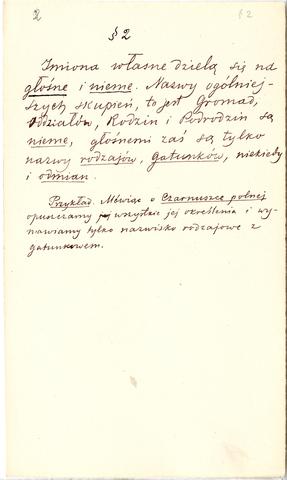 2
§ 2
§ 2
Imiona własne dzielą się na
głośne i nieme. Nazwy ogólniej-
szych skupień, to jest Gromad,
Oddziałów, Rodzin i Podrodzin są
nieme, głośnemi zaś są tylko
nazwy rodzajów, gatunków, niekiedy
i odmian.
Przykład. Mówiąc o Czarnuszce polnej
opuszczamy wszystkie jej określenia i wy-
mawiamy tylko nazwisko rodzajowe z
gatunkowem.